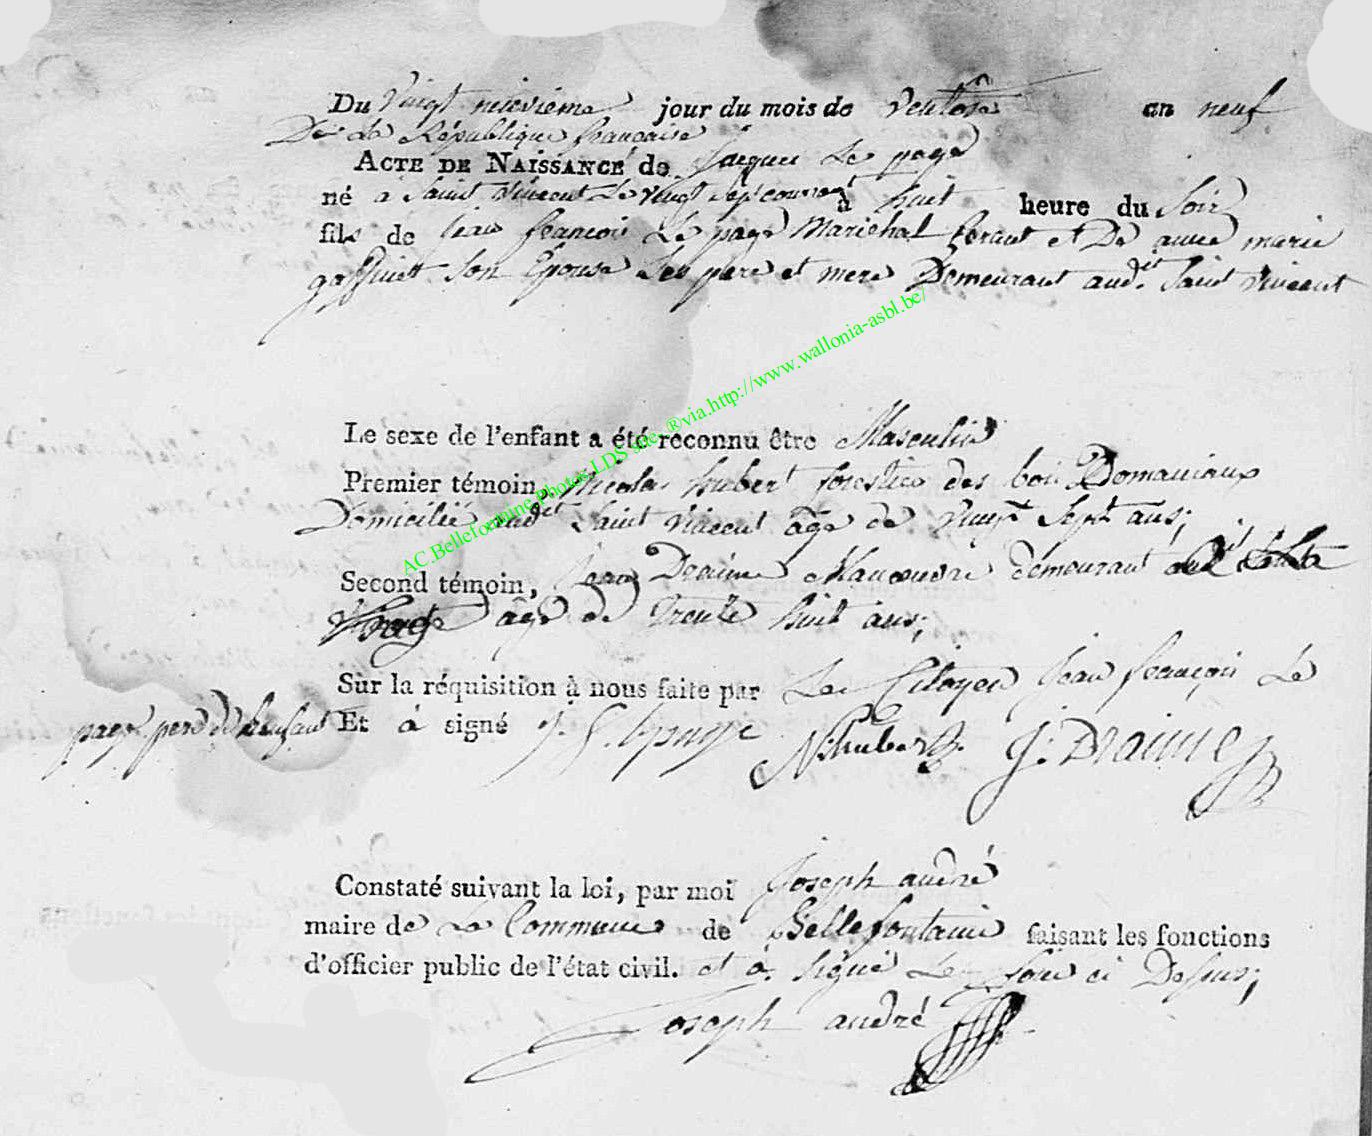 Du Vingt nievieme jour du mois de ventose an neuf
De La République française
ACTE DE NAISSANCE de Jacques Le page
né a Saint Vincent Le vingt sept courant à huit heure du Soir
fils de Jean francois Le page Marichal ferant et De anne marie
Son Epouse Ses pere et mere Demeurant aud.it Saint Vincent
Le sexe de l'enfant a été reconnu être Masculin
Premier témoin, Nicolas hubert forestier des bois Domaniaux
Domicilié aud.it Saint Vincent âgé de vingt Sept ans;
Second témoin, Jean Draime Manouvre demeurant
âgé de Trente huit ans;
Sur la réquisition à nous faite par Le Citoyen Jean françois Le
page pere de Lenfant Et à signé J. f. Lepage N. hubert J: Draime
Constaté suivant la loi, par moi Joseph andré
maire de La Commune de Bellefontaine faisant les fonctions
d'officier public de l'état civil. et a Signé Le Jour ci Dessus;
Joseph andré
AC.Bellefontaine.Photos.LDS site. ®via.http://www.wallonia-asbl.be/